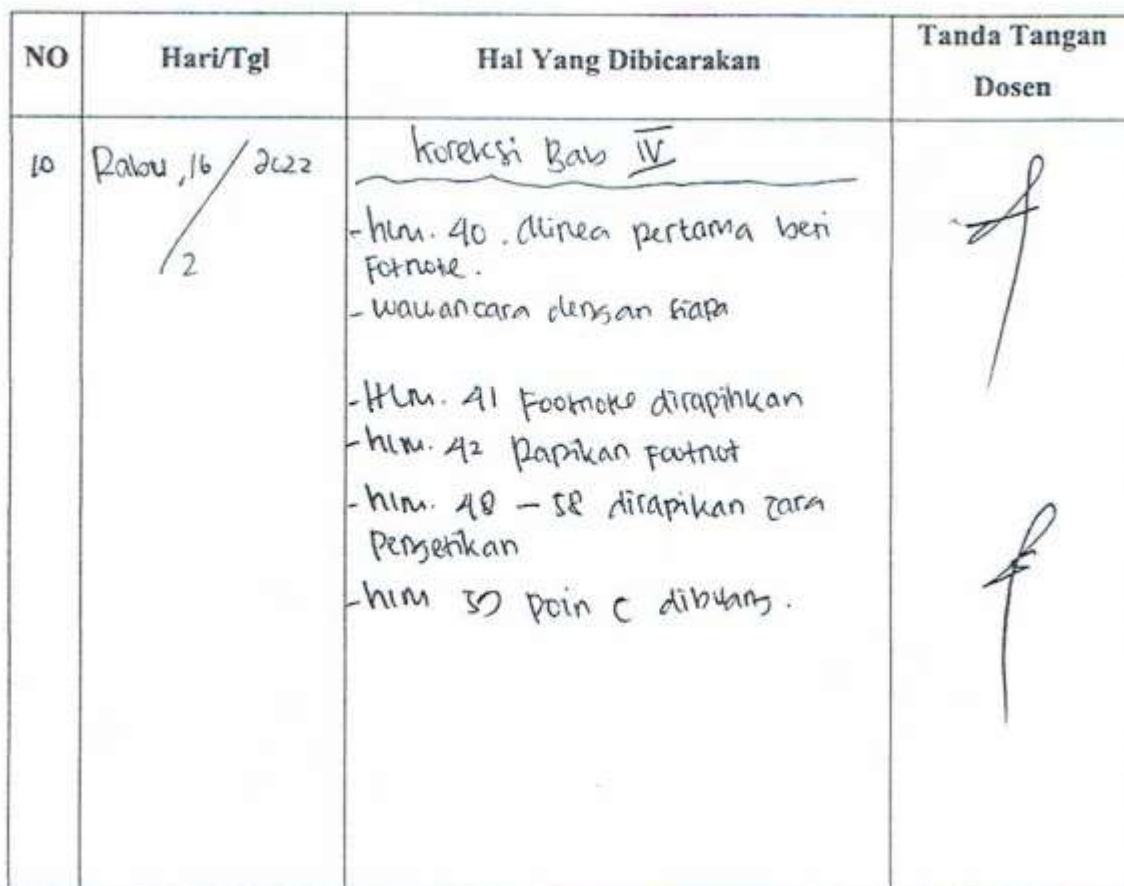 NO
Hari/Tgl
Hal Yang Dibicarakan
Tanda Tangan
Dosen
10
Rabu, 16/2 2022
Koreksi Bab IV
- hlm. 40. Alinea pertama beri
Fotnote.
- wawancara dengan siapa
- Hlm. 41 Footnote dirapihkan
- hlm. 42 Rapikan footnot
- hlm. 48 - 58 dirapikan cara
Pengetikan
- hlm poin C dibuang.